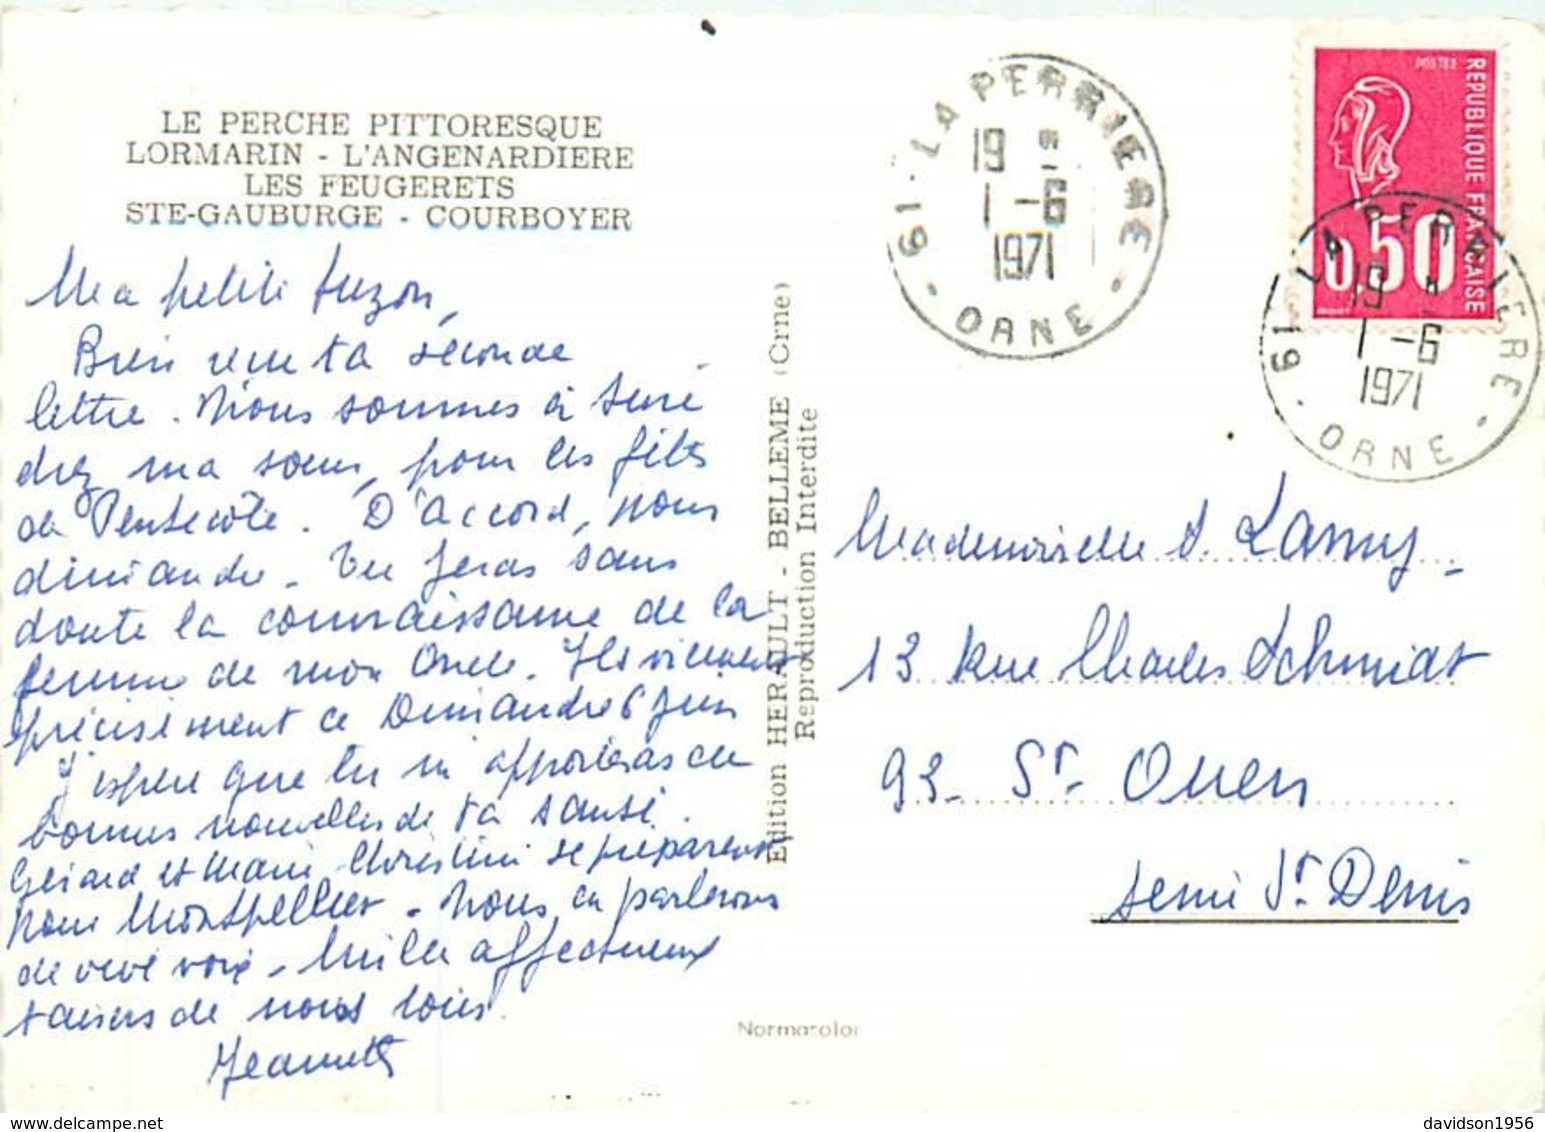 LE PERCHE PITTORESQUE
LORMARIN - L'ANGENARDIERE
LES FEUGERETS
STE-GAUBURGE - COURBOYER
Ma petite Suzon,
Bien reçu ta seconde
lettre. Nous sommes à
chez ma soeur, pour les fêtes
de Pentecôte. D'accord, pour
dimanche. Tu feras sans
doute la connaissance de la
femme de mon Oncle. Ils viennent
précisément ce Dimanche 6 juin
J'espère que tu m'apporteras de
bonnes nouvelles de ta santé.
Gérard et Marie-Christine se préparent
pour Montpellier. Nous en parlerons
de vive voix. Mille affectueux
baisers de nous tous.
Jeannette
Edition HERAULT - BELLEME (Orne)
Reproduction Interdite
61 - LA PERRIERE
19 H
1 - 6
1971
- ORNE -
POSTES
REPUBLIQUE FRANÇAISE
0,50
61 LA PERRIERE
19 H
1 - 6
1971
- ORNE -
Mademoiselle S. Lamy -
13 Rue Charles Schmidt
93 - St - Ouen
Seine St Denis
Normacolor
davidson1956